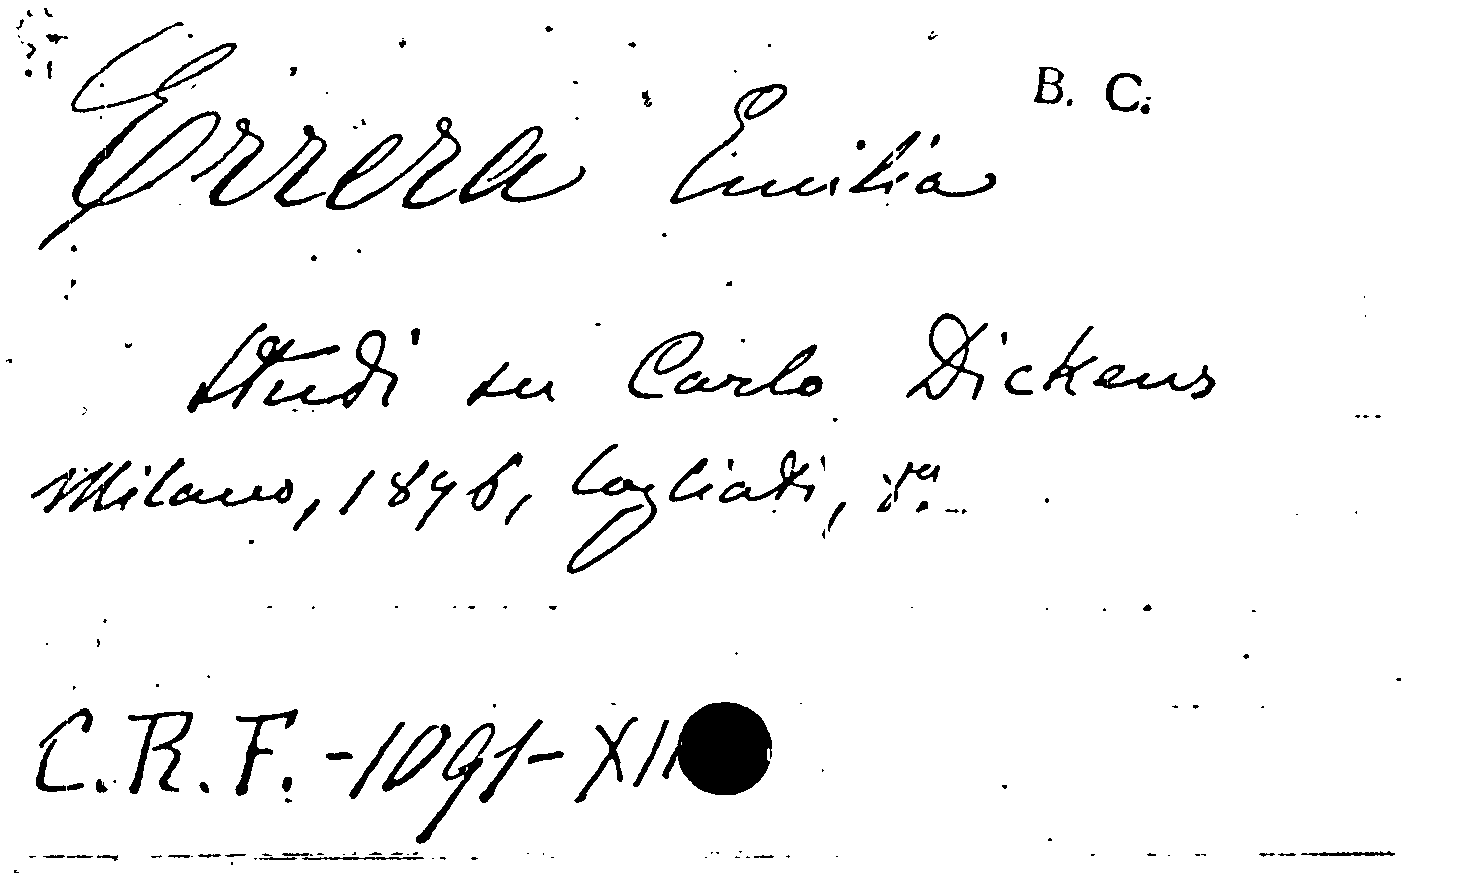 Errera Emilia B. C.
Studi su Carlo Dickens
Milano, 1896, Cogliati, 8º.
C.R.F. - 1091 - XII